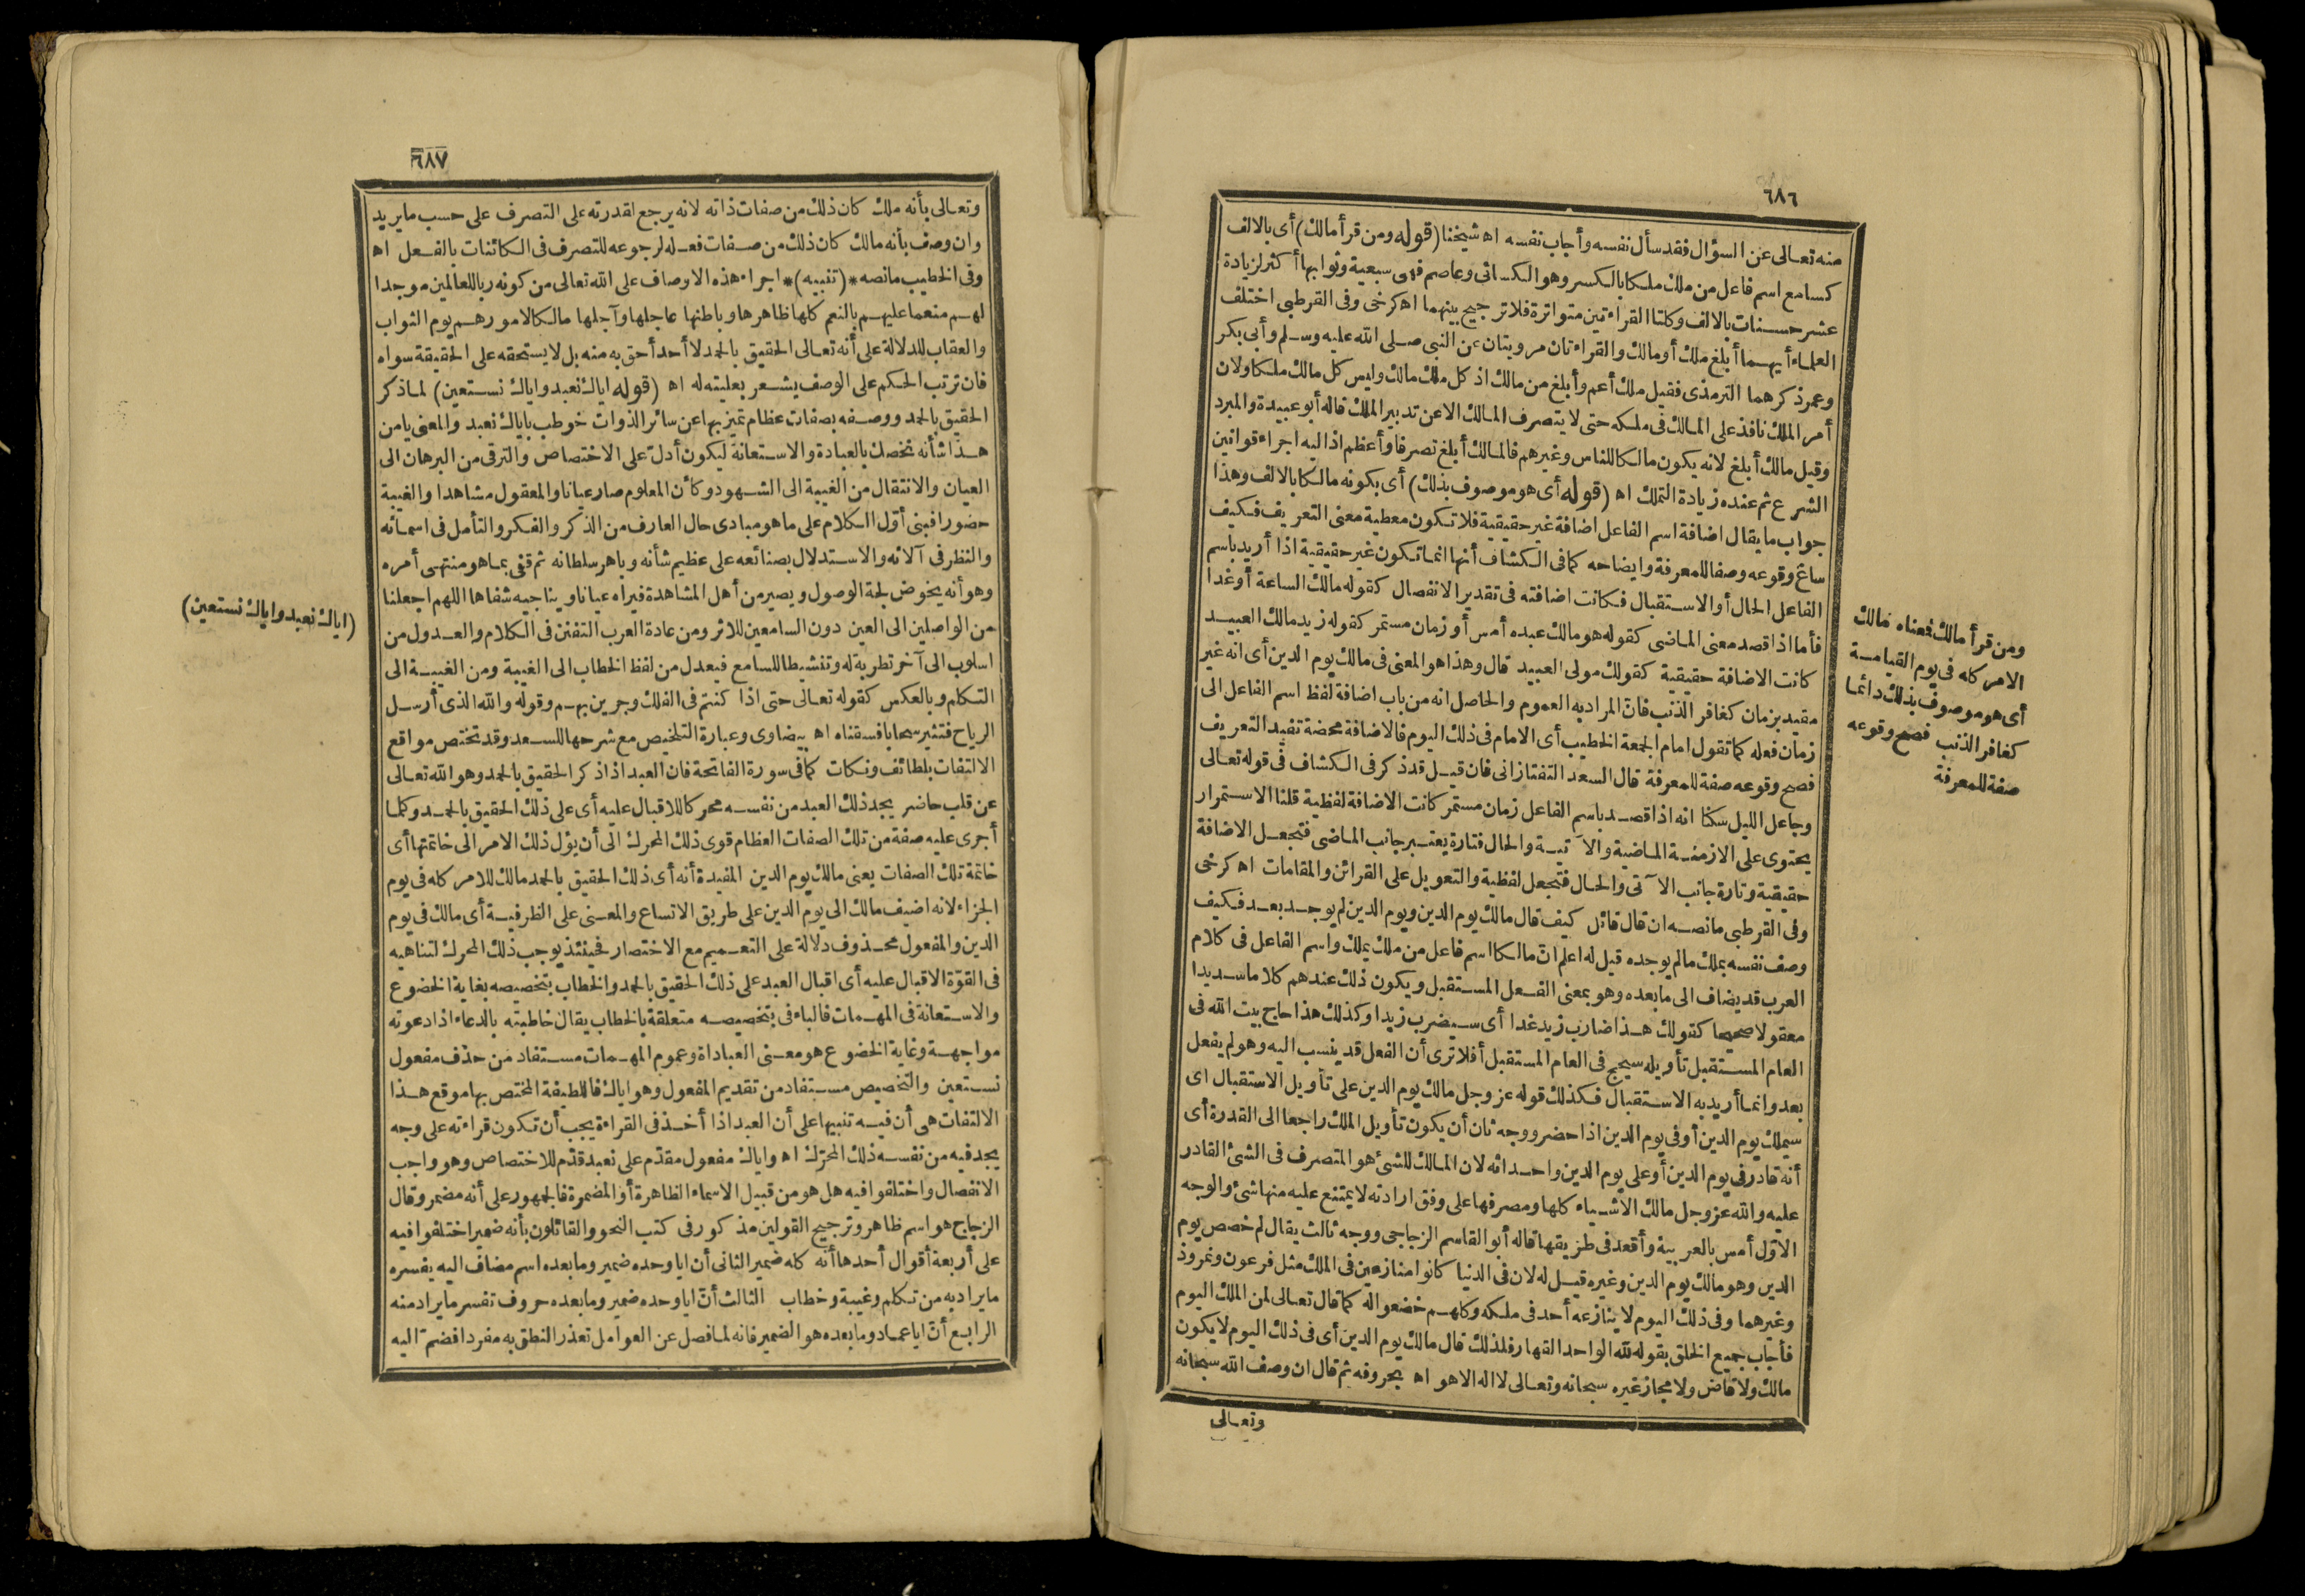 ٦٨٦
منه تعالى عن السؤال فقد سأل نفسه وأجاب نفسه اه شيخنا (قوله ومن قرأ مالك) أى بالالف
كسامع اسم فاعل من ملك ملكا بالكسر وهو الكسائى وعاصم فهى سبعية وثوابها أكثر لزيادة
عشر حسنات بالالف وكلتا القراءتين متواترة فلا ترجيح بينهما اه كرخى وفى القرطبى اختلف
العلماء أيهما أبلغ ملك أو مالك والقراءتان مرويتان عن النبى صلى الله عليه وسلم وأبى بكر
وعمر ذكرهما الترمذى فقيل ملك أعم وأبلغ من مالك اذ كل ملك مالك وليس كل مالك ملكا ولان
أمر الملك نافذ على المالك فى ملكه حتى لا يتصرف المالك الا عن تدبير الملك قاله أبو عبيدة والمبرد
وقيل مالك أبلغ لانه يكون مالكا للناس وغيرهم فالمالك أبلغ تصرفا وأعظم اذ اليه اجراء قوانين
الشرع ثم عنده زيادة التملك اه (قوله أى هو موصوف بذلك) أى بكونه مالكا بالالف وهذا
جواب ما يقال اضافة اسم الفاعل اضافة غير حقيقية فلا تكون معطية معنى التعريف فكيف
ساغ وقوعه وصفا للمعرفة وايضاحه كما فى الكشاف أنها انما تكون غير حقيقية اذا أريد باسم
الفاعل الحال أو الاستقبال فكانت اضافته فى تقدير الانفصال كقوله مالك الساعة أو غدا
فأما اذا قصد معنى الماضى كقوله هو مالك عبده أمس أو زمان مستمر كقوله زيد مالك العبيد
كانت الاضافة حقيقية كقولك مولى العبيد قال وهذا هو المعنى فى مالك يوم الدين أى انه غير
مقيد بزمان كغافر الذنب فان المراد به العموم والحاصل انه من باب اضافة لفظ اسم الفاعل الى
زمان فعله كما تقول امام الجمعة الخطيب أى الامام فى ذلك اليوم فالاضافة محضة تفيد التعريف
فصح وقوعه صفة للمعرفة قال السعد التفتازانى فان قيل قد ذكر فى الكشاف فى قوله تعالى
وجاعل الليل سكنا انه اذا قصد باسم الفاعل زمان مستمر كانت الاضافة لفظية قلنا الاستمرار
يحتوى على الازمنة الماضية والآتية والحال فتارة يعتبر جانب الماضى فتجعل الاضافة
حقيقية وتارة جانب الآتى والحال فتجعل لفظية والتعويل على القرائن والمقامات اه كرخى
وفى القرطبى ما نصه ان قال قائل كيف قال مالك يوم الدين ويوم الدين لم يوجد بعد فكيف
وصف نفسه بملك ما لم يوجده قيل له اعلم ان مالكا اسم فاعل من ملك يملك واسم الفاعل فى كلام
العرب قد يضاف الى ما بعده وهو بمعنى الفعل المستقبل ويكون ذلك عندهم كلاما سديدا
معقولا صحيحا كقولك هذا ضارب زيد غدا أى سيضرب زيدا وكذلك هذا حاج بيت الله فى
العام المستقبل تأويله سيحج فى العام المستقبل أفلا ترى أن الفعل قد ينسب اليه وهو لم يفعل
بعد وانما أريد به الاستقبال فكذلك قوله عز وجل مالك يوم الدين على تأويل الاستقبال اى
سيملك يوم الدين أو فى يوم الدين اذا حضر ووجه ثان أن يكون تأويل الملك راجعا الى القدرة أى
أنه قادر فى يوم الدين أو على يوم الدين واحداثه لان المالك للشئ هو المتصرف فى الشئ القادر
عليه والله عز وجل مالك الاشياء كلها ومصرفها على وفق ارادته لا يمتنع عليه منها شئ والوجه
الاوّل أمس بالعربية وأقعد فى طريقها قاله أبو القاسم الزجاجى ووجه ثالث يقال لم خصص يوم
الدين وهو مالك يوم الدين وغيره قيل له لان فى الدنيا كانوا منازعين فى الملك مثل فرعون ونمروذ
وغيرهما وفى ذلك اليوم لا ينازعه أحد فى ملكه وكلهم خضعوا له كما قال تعالى لمن الملك اليوم
فأجاب جميع الخلق بقوله لله الواحد القهار فلذلك قال مالك يوم الدين أى فى ذلك اليوم لا يكون
مالك ولا قاض ولا مجاز غيره سبحانه وتعالى لا اله الا هو اه بحروفه ثم قال ان وصف الله سبحانه
وتعالى
ومن قرأ مالك فمعناه مالك
الامر كله فى يوم القيامة
أى هو موصوف بذلك دائما
كغافر الذنب فصح وقوعه
صفة للمعرفة
٦٨٧
وتعالى بأنه ملك كان ذلك من صفات ذاته لانه يرجع لقدرته على التصرف على حسب ما يريد
وان وصف بأنه مالك كان ذلك من صفات فعله لرجوعه للتصرف فى الكائنات بالفعل اه
وفى الخطيب ما نصه *(تنبيه)* اجراء هذه الاوصاف على الله تعالى من كونه ربا للعالمين موجدا
لهم منعما عليهم بالنعم كلها ظاهرها وباطنها عاجلها وآجلها مالكا لامورهم يوم الثواب
والعقاب للدلالة على أنه تعالى الحقيق بالحمد لا أحد أحق به منه بل لا يستحقه على الحقيقة سواه
فان ترتب الحكم على الوصف يشعر بعليته له اه (قوله اياك نعبد واياك نستعين) لما ذكر
الحقيق بالحمد ووصفه بصفات عظام تميز بها عن سائر الذوات خوطب باياك نعبد والمعنى يا من
هذا شأنه نخصك بالعبادة والاستعانة ليكون أدلّ على الاختصاص والترقى من البرهان الى
العيان والانتقال من الغيبة الى الشهود وكأن المعلوم صار عيانا والمعقول مشاهدا والغيبة
حضورا فبنى أوّل الكلام على ما هو مبادى حال العارف من الذكر والفكر والتأمل فى اسمائه
والنظر فى آلائه والاستدلال بصنائعه على عظيم شأنه وباهر سلطانه ثم قفى بما هو منتهى أمره
وهو أنه يخوض لجة الوصول ويصير من أهل المشاهدة فيراه عيانا ويناجيه شفاها اللهم اجعلنا
من الواصلين الى العين دون السامعين للاثر ومن عادة العرب التفنن فى الكلام والعدول من
اسلوب الى آخر تطرية له وتنشيطا للسامع فيعدل من لفظ الخطاب الى الغيبة ومن الغيبة الى
التكلم وبالعكس كقوله تعالى حتى اذا كنتم فى الفلك وجرين بهم وقوله والله الذى أرسل
الرياح فتثير سحابا فسقناه اه بيضاوى وعبارة التلخيص مع شرحها للسعد وقد تختص مواقع
الالتفات بلطائف ونكات كما فى سورة الفاتحة فان العبد اذا ذكر الحقيق بالحمد وهو الله تعالى
عن قلب حاضر يجد ذلك العبد من نفسه محركا للاقبال عليه أى على ذلك الحقيق بالحمد وكلما
أجرى عليه صفة من تلك الصفات العظام قوى ذلك المحرك الى أن يؤل ذلك الامر الى خاتمتها أى
خاتمة تلك الصفات يعنى مالك يوم الدين المفيدة أنه أى ذلك الحقيق بالحمد مالك للامر كله فى يوم
الجزاء لانه اضيف مالك الى يوم الدين على طريق الاتساع والمعنى على الظرفية أى مالك فى يوم
الدين والمفعول محذوف دلالة على التعميم مع الاختصار فحينئذ يوجب ذلك المحرك لتناهيه
فى القوّة الاقبال عليه أى اقبال العبد على ذلك الحقيق بالحمد والخطاب بتخصيصه بغاية الخضوع
والاستعانة فى المهمات فالباء فى بتخصيصه متعلقة بالخطاب يقال خاطبته بالدعاء اذا دعوته
مواجهة وغاية الخضوع هو معنى العباداة وعموم المهمات مستفاد من حذف مفعول
نستعين والتخصيص مستفاد من تقديم المفعول وهو اياك فاللطيفة المختص بها موقع هذا
الالتفات هى أن فيه تنبيها على أن العبد اذا أخذ فى القراءة يجب أن تكون قراءته على وجه
يجد فيه من نفسه ذلك المحرّك اه واياك مفعول مقدّم على نعبد قدّم للاختصاص وهو واجب
الانفصال واختلفوا فيه هل هو من قبيل الاسماء الظاهرة أو المضمرة فالجمهور على أنه مضمر وقال
الزجاج هو اسم ظاهر وترجيح القولين مذكور فى كتب النحو والقائلون بأنه ضمير اختلفوا فيه
على أربعة أقوال أحدها أنه كله ضمير الثانى أن ايا وحده ضمير وما بعده اسم مضاف اليه يفسره
ما يراد به من تكلم وغيبة وخطاب الثالث أنّ ايا وحده ضمير وما بعده حروف تفسر ما يراد منه
الرابع أنّ ايا عماد وما بعده هو الضمير فانه لما فصل عن العوامل تعذر النطق به مفردا فضمّ اليه
(اياك نعبد واياك نستعين)